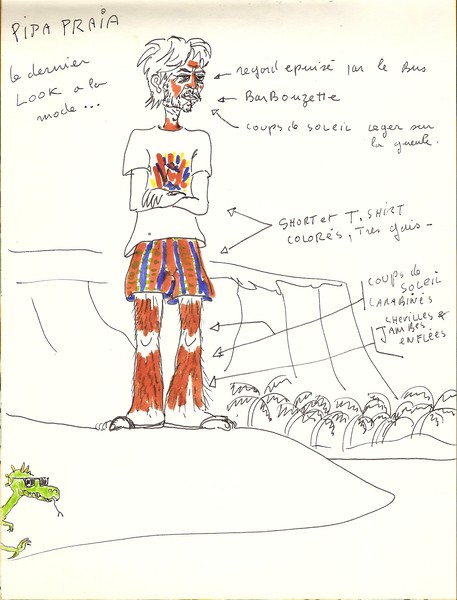 PIPA PRAIA
le dernier
LOOK a la
mode...
regard epuisé par le Bus
BarBouzette
coups de SOLEIL Leger sur
la gueule.
SHORT et T. SHIRT
COLORÉS, TRES gais -
COUPS de
SOLEIL
CARABINÉS
CHEVILLES &
JAMBES
ENFLÉES